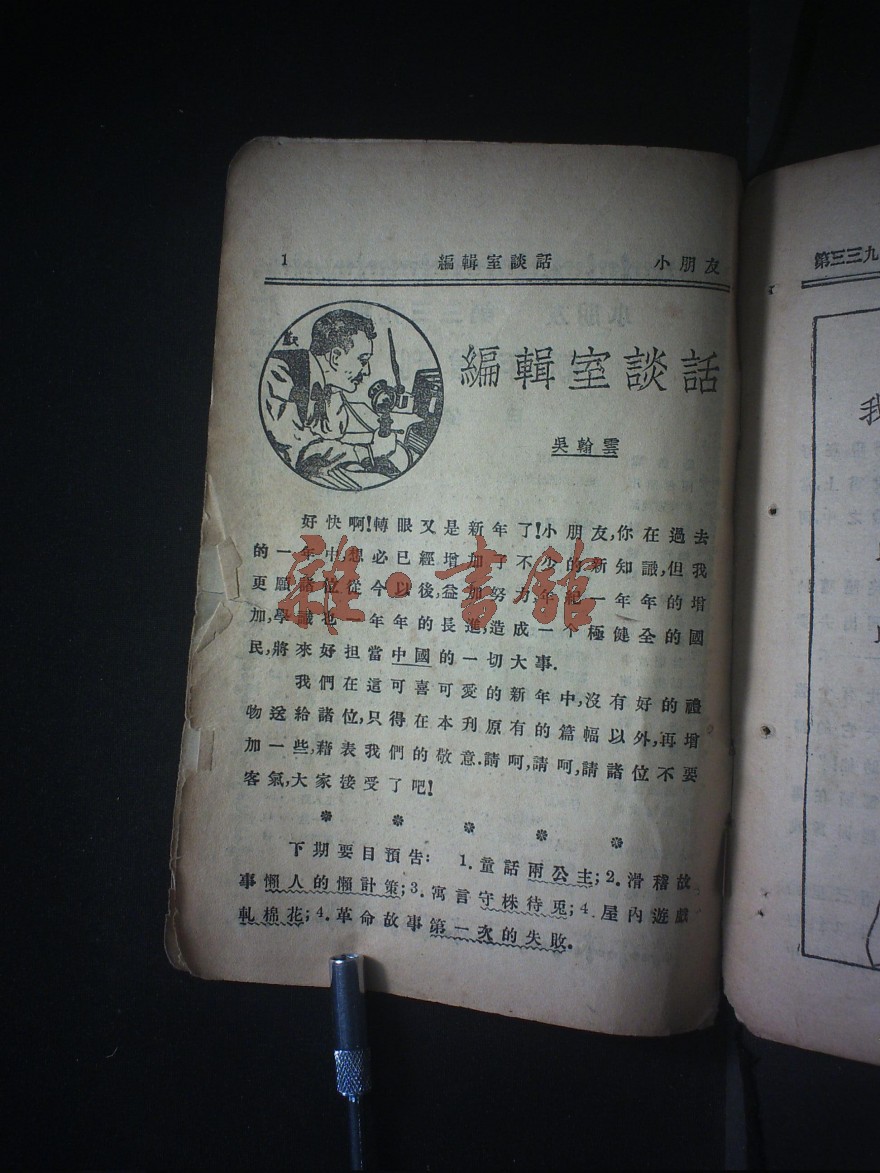 1 編輯室談話 小朋友
編輯室談話
吳翰雲
好快啊!轉眼又是新年了!小朋友,你在過去
的一年中,想必已經增加了不少的新知識,但我
更願諸位從今以後,益加努力,年紀一年年的增
加,學識也一年年的長進,造成一个極健全的國
民,將來好担當中國的一切大事.
我們在這可喜可愛的新年中,沒有好的禮
物送給諸位,只得在本刋原有的篇幅以外,再增
加一些,藉表我們的敬意.請呵,請呵,請諸位不要
客氣,大家接受了吧!
下期要目預告: 1.童話兩公主;2.滑稽故
事懶人的懶計策;3.寓言守株待兎;4.屋內遊戲
軋棉花;4.革命故事第一次的失敗.
雜·書館
第三三九
我